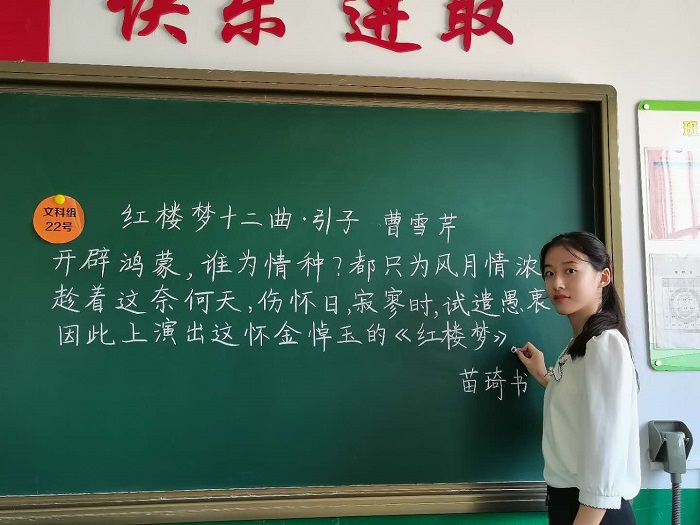 快乐 进取
班
文科组
22号
红楼梦十二曲·引子 曹雪芹
开辟鸿蒙,谁为情种?都只为风月情浓
趁着这奈何天,伤怀日,寂寥时,试遣愚衷
因此上演出这怀金悼玉的《红楼梦》
苗琦书